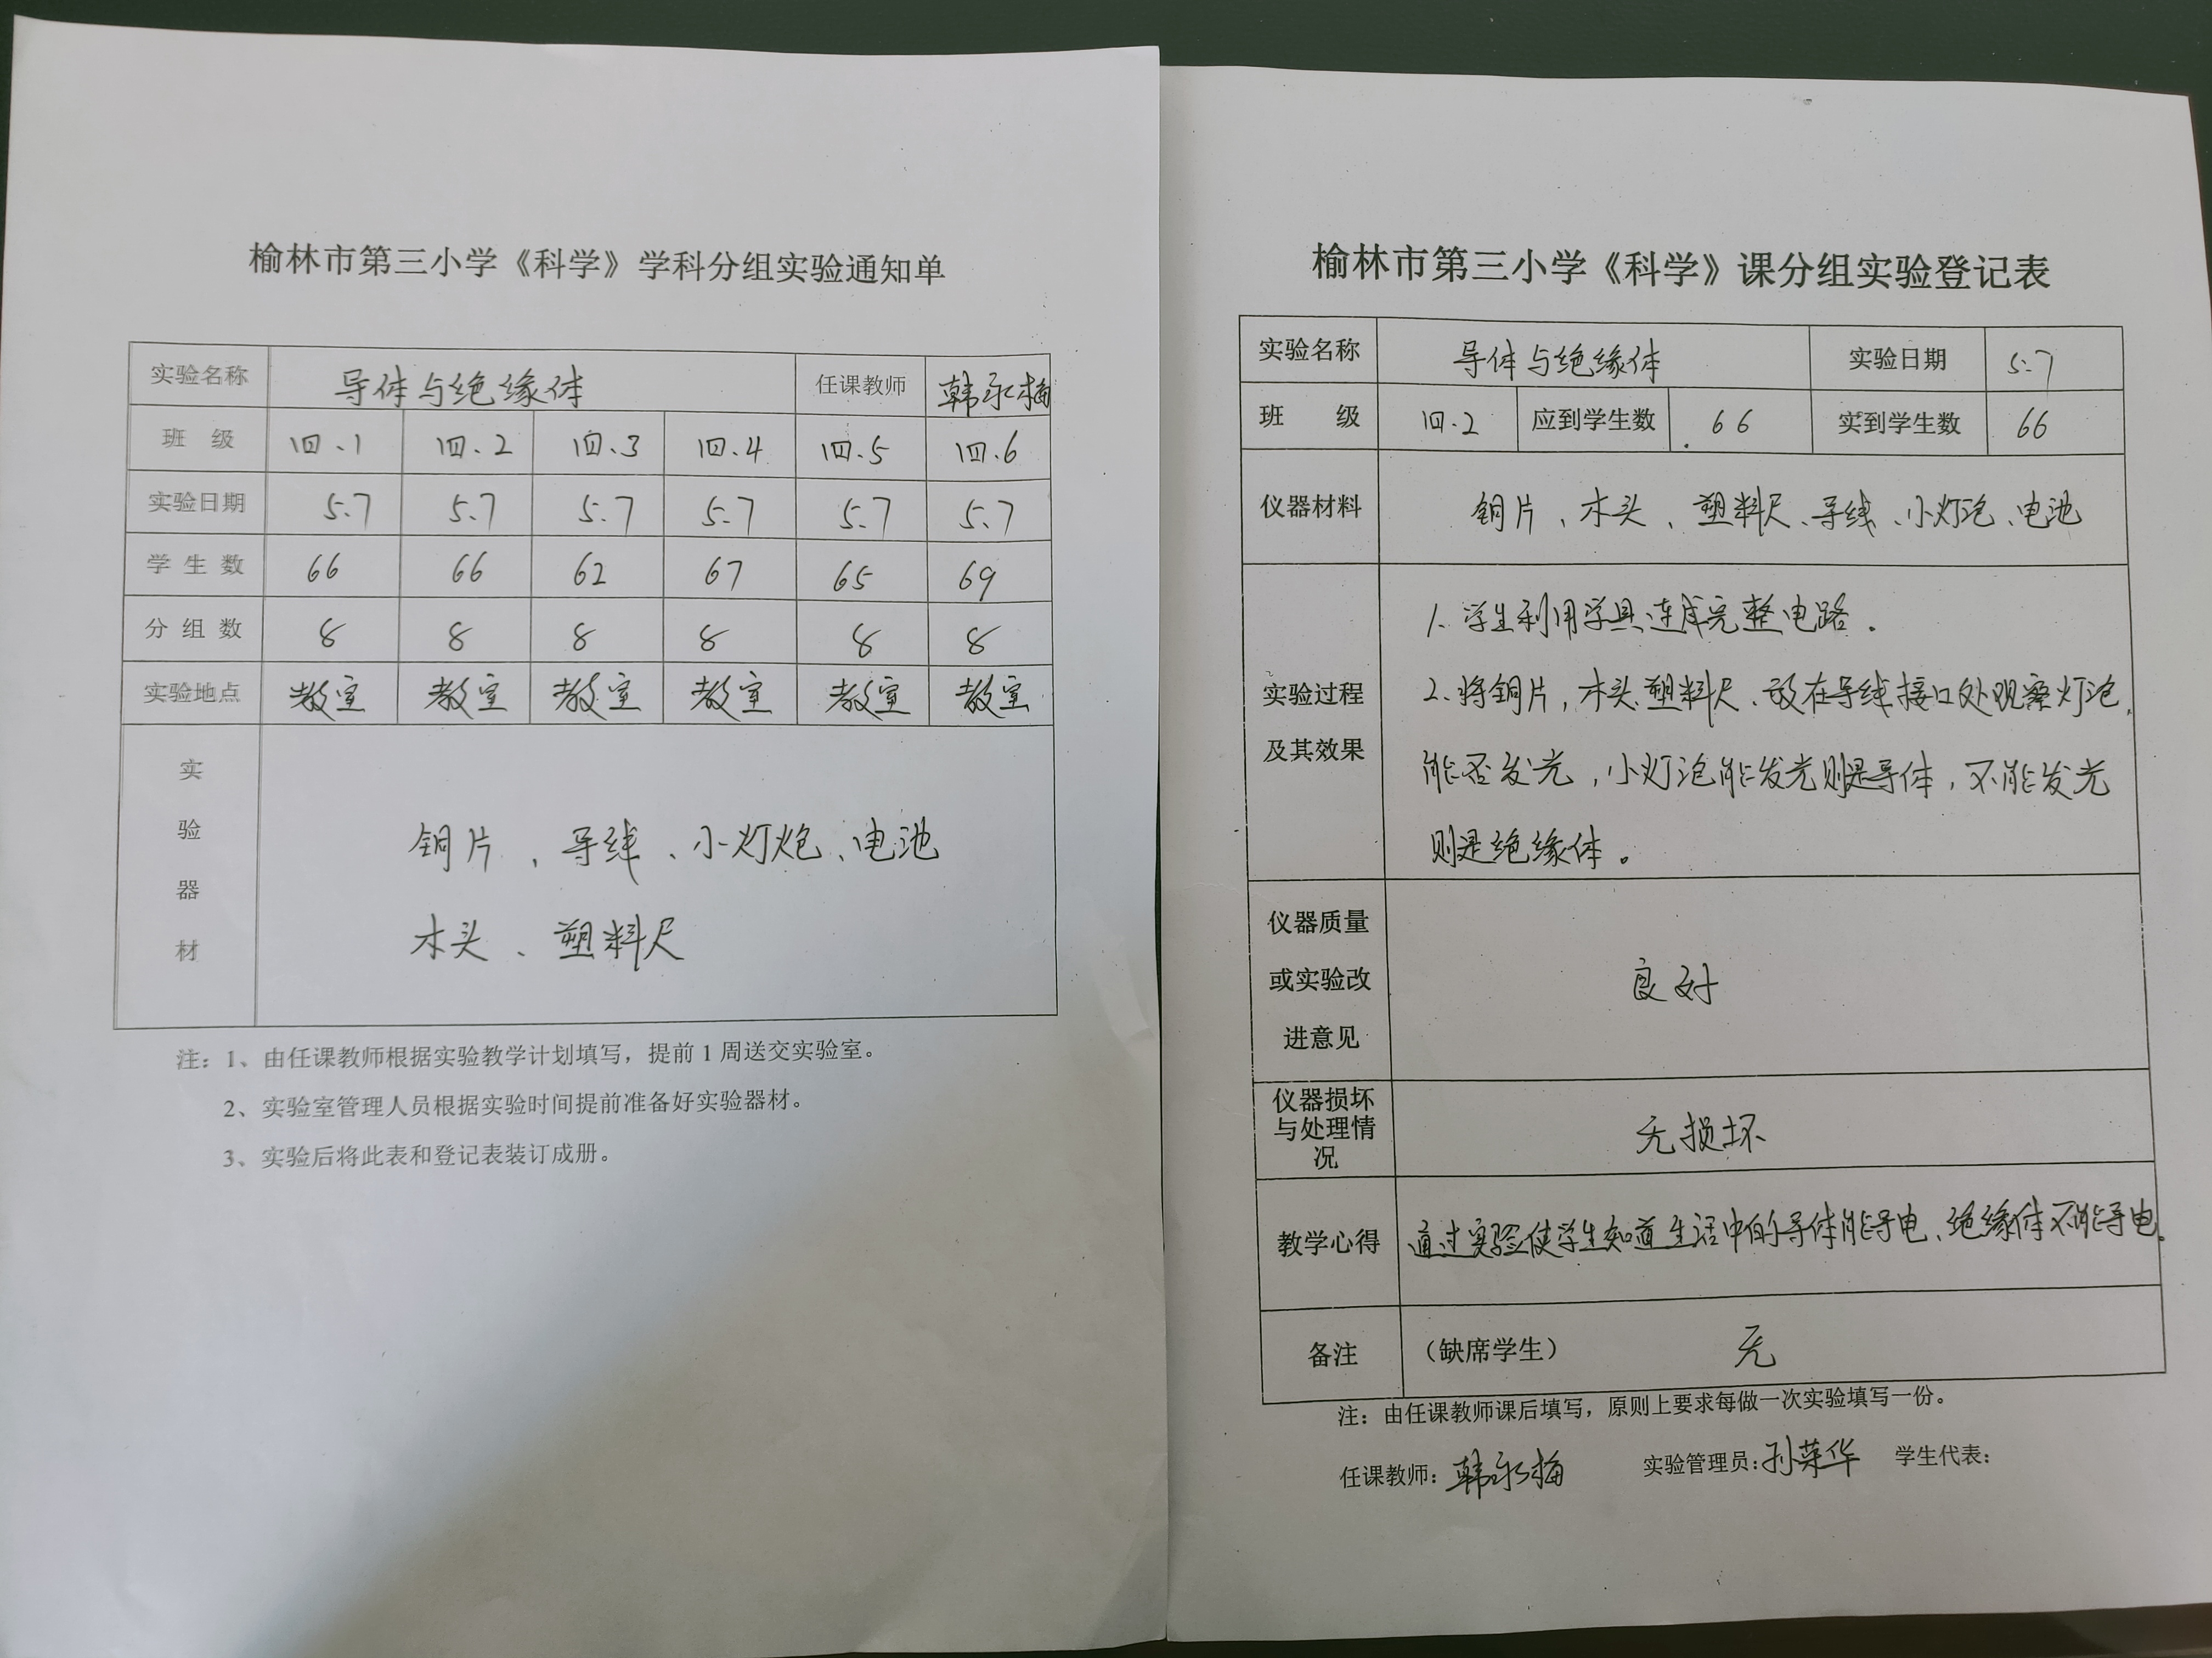 榆林市第三小学《科学》学科分组实验通知单
实验名称 导体与绝缘体 任课教师 韩永梅
班 级 四.1 四.2 四.3 四.4 四.5 四.6
实验日期 5.7 5.7 5.7 5.7 5.7 5.7
学生数 66 66 62 67 65 69
分组数 8 8 8 8 8 8
实验地点 教室 教室 教室 教室 教室 教室
实验器材
铜片、导线、小灯炮、电池
木头、塑料尺
注：1、由任课教师根据实验教学计划填写，提前1周送交实验室。
2、实验室管理人员根据实验时间提前准备好实验器材。
3、实验后将此表和登记表装订成册。
榆林市第三小学《科学》课分组实验登记表
实验名称 导体与绝缘体 实验日期 5.7
班 级 四.2 应到学生数 66 实到学生数 66
仪器材料 铜片、木头、塑料尺、导线、小灯泡、电池
实验过程
及其效果
1.学生利用学具连成完整电路.
2.将铜片，木头.塑料尺、放在导线接口处观察灯泡.
能否发光，小灯泡能发光则是导体，不能发光
则是绝缘体。
仪器质量
或实验改
进意见
良好
仪器损坏
与处理情
况
无损坏
教学心得 通过实验使学生知道生活中的导体能导电、绝缘体不能导电.
备注 （缺席学生） 无
注：由任课教师课后填写，原则上要求每做一次实验填写一份。
任课教师：韩永梅 实验管理员：孙荣华 学生代表：